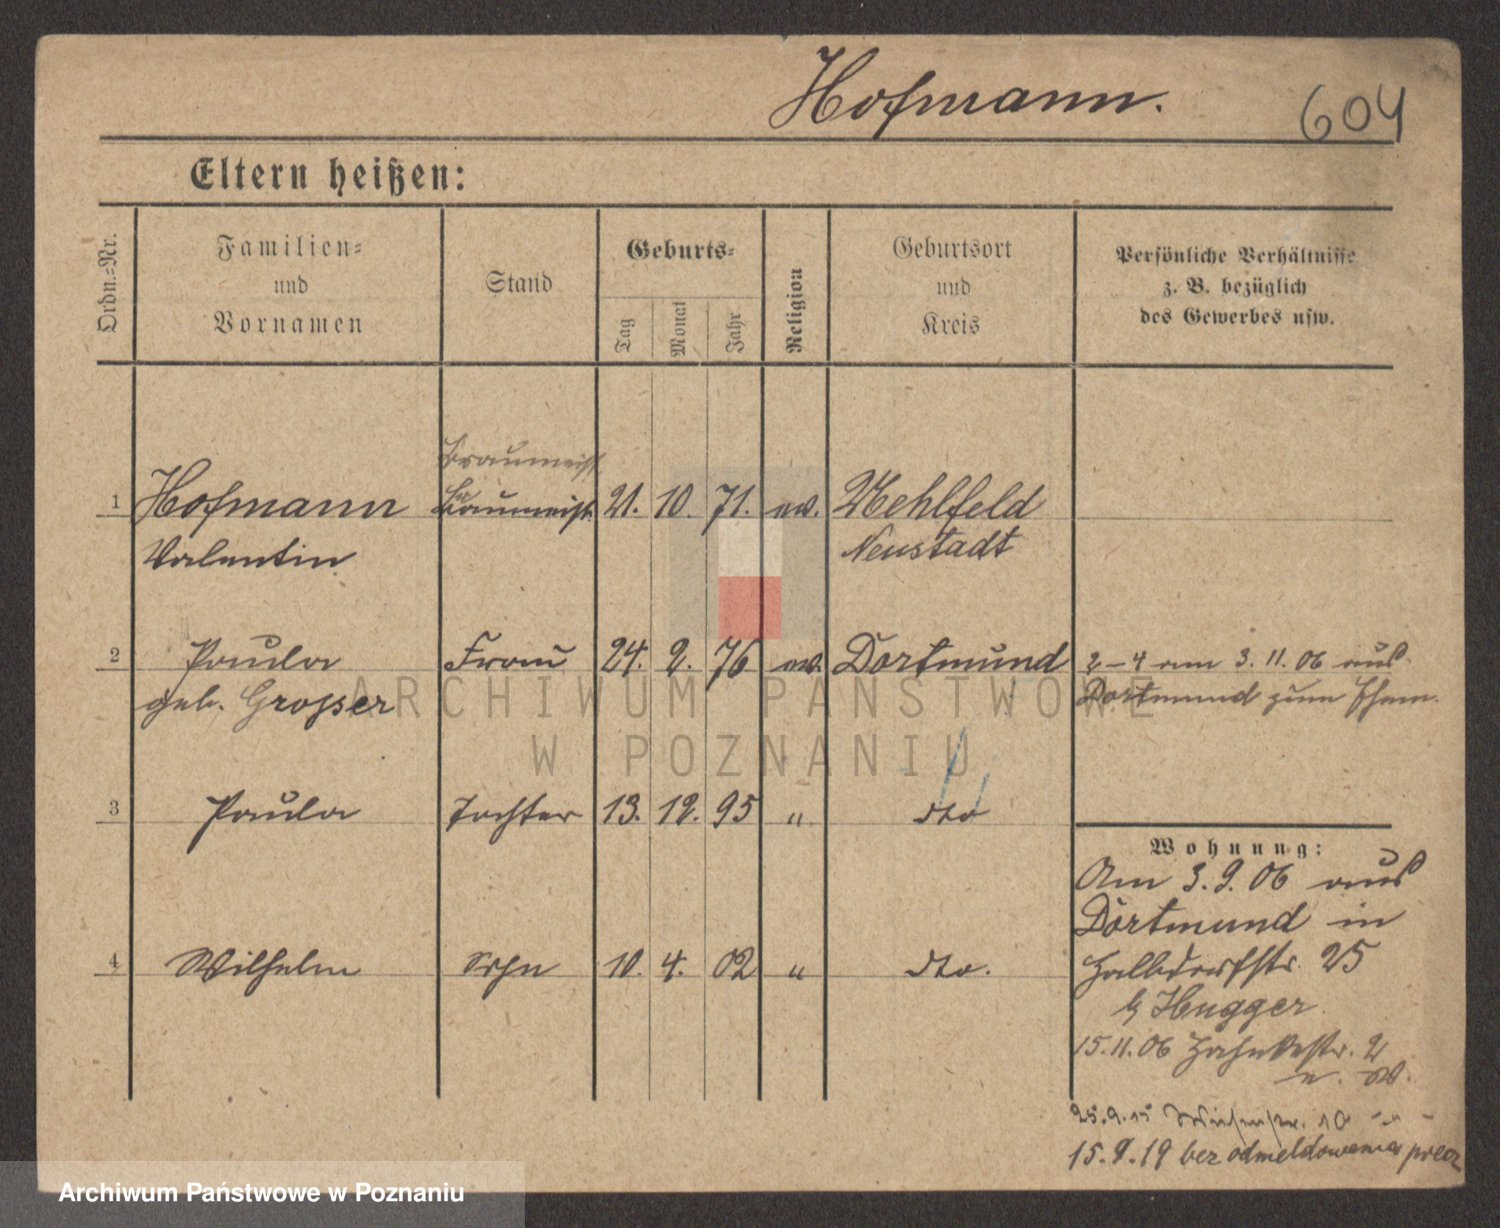 Hofmann.
604
Eltern heißen:
Ordn.=Nr.
Familien=
und
Vornamen
Stand
Geburts=
Tag
Monat
Jahr
Religion
Geburtsort
und
Kreis
Persönliche Verhältnisse
z. B. bezüglich
des Gewerbes usw.
Braumeist.
1 Hofmann Braumeist. 21. 10. 71. ev. Mehlfeld
Valentin Neustadt
2 Paula Frau 24. 2. 76 ev. Dortmund 2-4 am 3. 11. 06 aus
geb. Grosser Dortmund zum Ehem.
3 Paula Tochter 13. 12. 95 " dto
Wohnung:
Am 3. 9. 06 aus
Dortmund in
4 Wilhelm Sohn 10. 4. 02 " dto.
Halbdorfstr. 25
b/ Hugger.
15. 11. 06 2
25.9.15 10
15. 9. 19 bez odmeldowania
ARCHIWUM PAŃSTWOWE
W POZNANIU
Archiwum Państwowe w Poznaniu